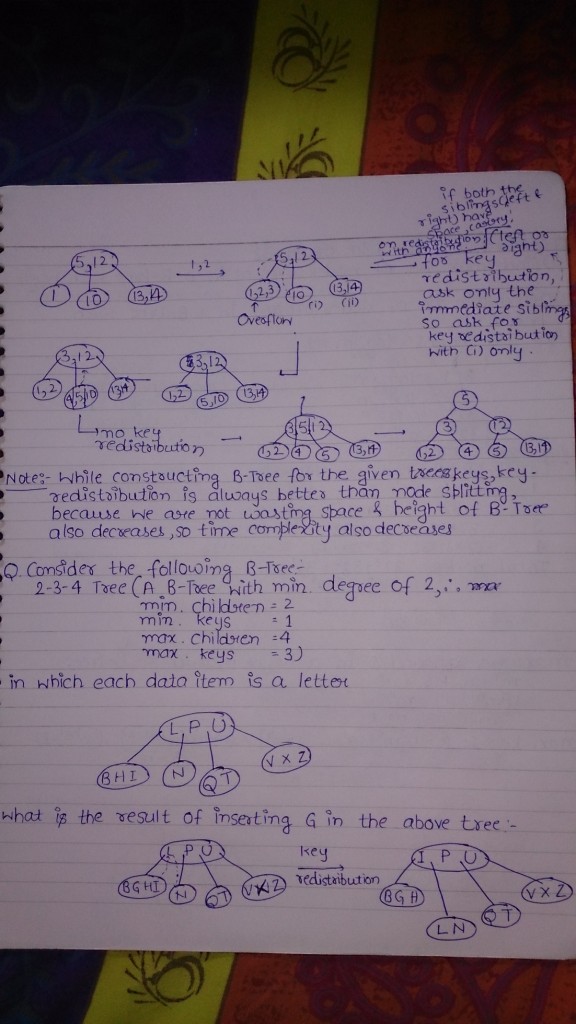 if both the
siblings (left &
right) have
space, carry
on redistribution
with anyone (left or
right)
5,12
1
10
13,14
1,2
5,12
1,2,3
10
(i)
13,14
(ii)
Overflow
for key
redistribution,
ask only the
immediate siblings
so ask for
key redistribution
with (i) only.
3,12
1,2
4,5,10
13,14
3,12
1,2
5,10
13,14
no key
redistribution
3,5,12
1,2
4
5
13,14
5
3
12
1,2
4
5
13,14
Note:- While constructing B-Tree for the given keys, key-
redistribution is always better than node splitting,
because we are not wasting space & height of B-Tree
also decreases, so time complexity also decreases
Q. Consider the following B-Tree:-
2-3-4 Tree (A B-Tree with min. degree of 2, ∴
min. children = 2
min. keys = 1
max. children = 4
max. keys = 3)
in which each data item is a letter
L P U
BHI
N
QT
V X Z
what is the result of inserting G in the above tree:-
L P U
BGHI
N
QT
VXZ
key
redistribution
I P U
BGH
LN
QT
VXZ